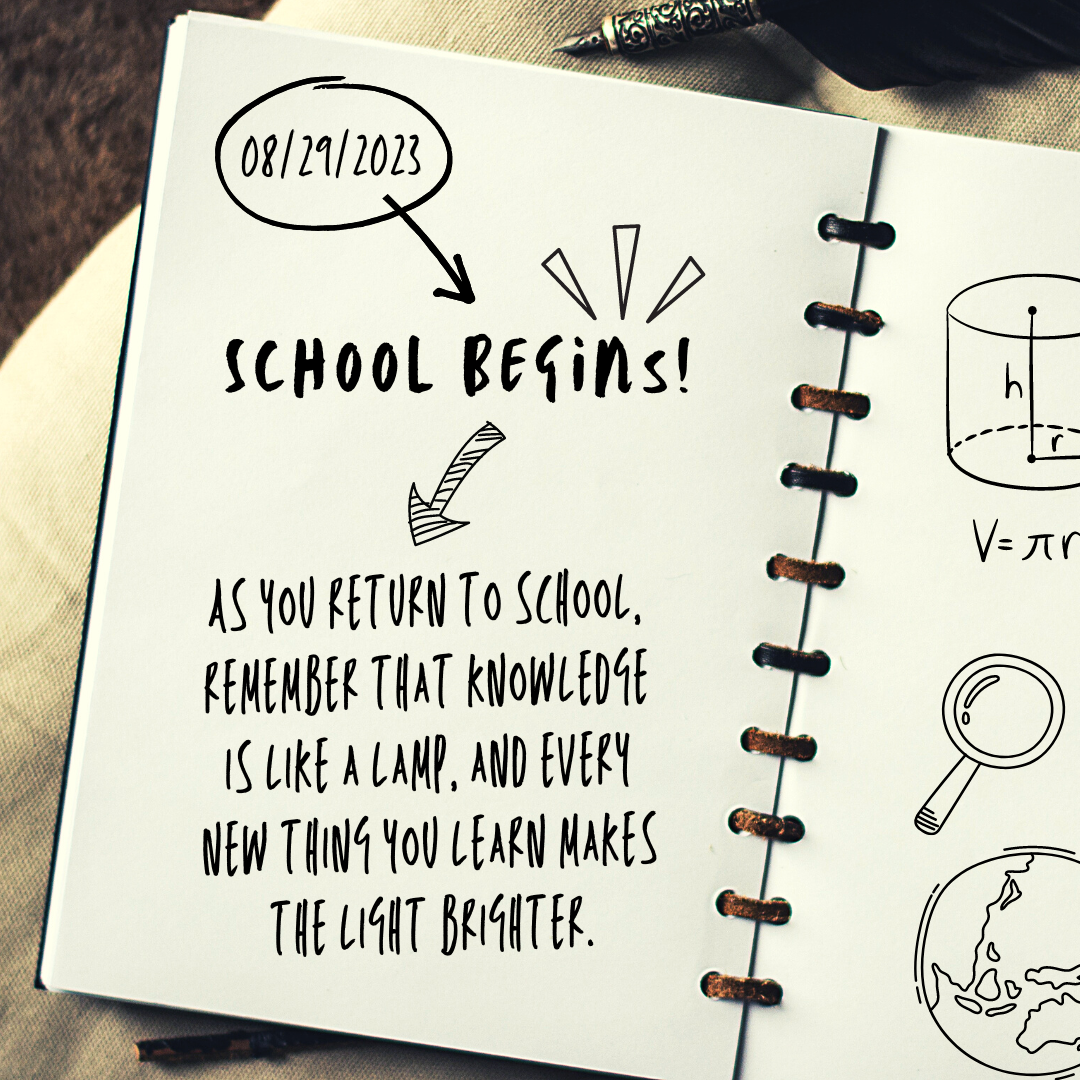 08/29/2023
SCHOOL BEGINS!
AS YOU RETURN TO SCHOOL,
REMEMBER THAT KNOWLEDGE
IS LIKE A LAMP, AND EVERY
NEW THING YOU LEARN MAKES
THE LIGHT BRIGHTER.
h
r
V= πr